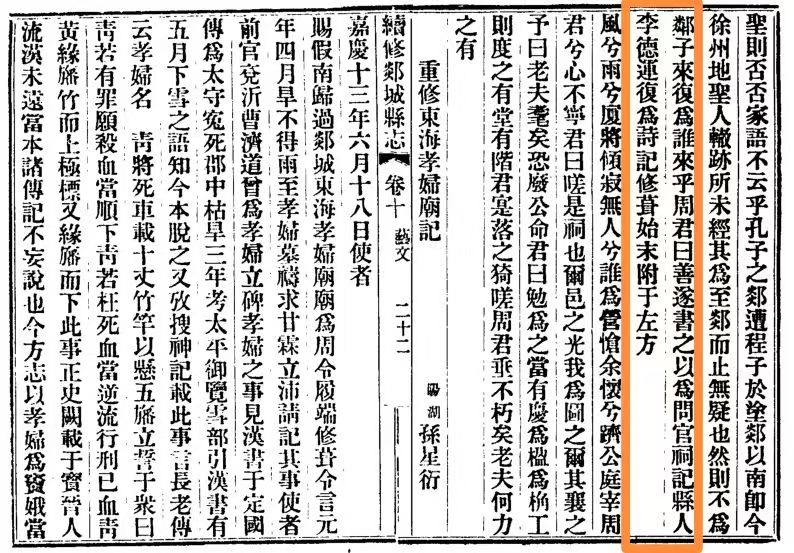 聖則否否家語不云乎孔子之郯遭程子於塗郯以南卽今
徐州地聖人轍跡所未經其爲至郯而止無疑也然則不爲
郯子來復爲誰來乎周君曰善遂書之以爲問官祠記縣人
李德運復爲詩記修葺始末附于左方
風兮雨兮厦將傾寂無人兮誰爲營愴余懷兮躋公庭宰周
君兮心不寧君曰嗟是祠也爾邑之光我爲圖之爾其襄之
予曰老夫耄矣恐廢公命君曰勉爲之當有慶爲楹爲桷工
則度之有堂有階君寔落之猗嗟周君垂不朽矣老夫何力
之有
重修東海孝婦廟記 陽湖 孫星衍
續修郯城縣志 卷十 藝文 二十二
嘉慶十三年六月十八日使者
賜假南歸過郯城東海孝婦廟廟爲周令履端修葺令言元
年四月旱不得雨至孝婦墓禱求甘霖立沛請記其事使者
前官兗沂曹濟道曾爲孝婦立碑孝婦之事見漢書于定國
傳爲太守冤死郡中枯旱三年考太平御覽雪部引漢書有
五月下雪之語知今本脫之又攷搜神記載此事言長老傳
云孝婦名 靑將死車載十丈竹竿以懸五旛立誓于衆曰
靑若有罪願殺血當順下靑若枉死血當逆流行刑已血靑
黃緣旛竹而上極標又緣旛而下此事正史闕載于寶晉人
流漢未遠當本諸傳記不妄說也今方志以孝婦爲竇娥當